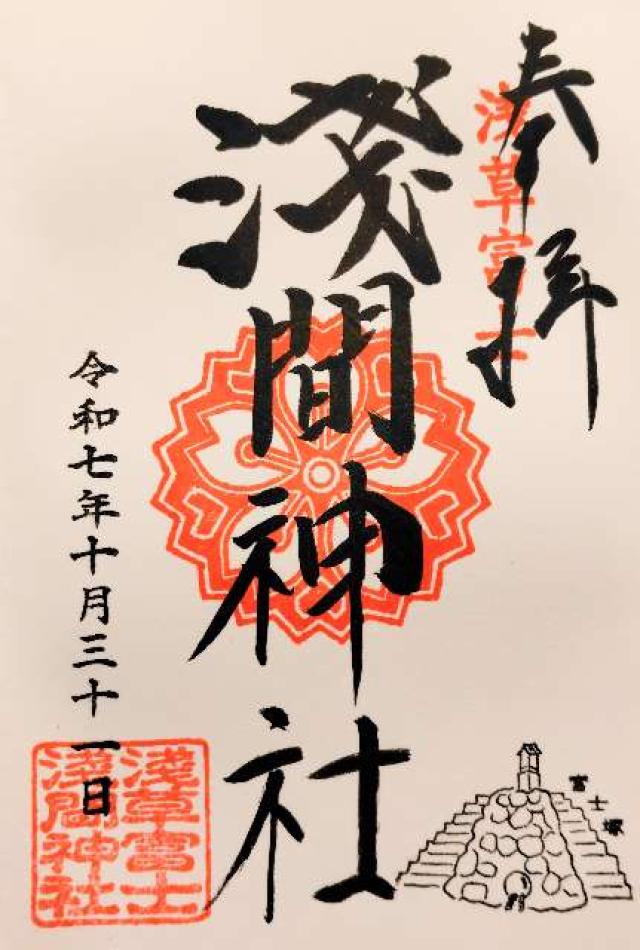 奉拝
浅草富士
淺間神社
令和七年十月三十一日
淺草富士
淺間神社
富士塚